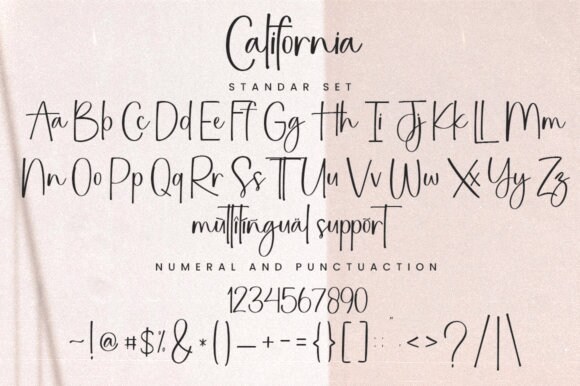 California
STANDAR SET
Aa Bb Cc Dd Ee Ff Gg Hh Ii Jj Kk Ll Mm
Nn Oo Pp Qq Rr Ss Tt Uu Vv Ww Xx Yy Zz
mūltĭfïngŭäl süppört
NUMERAL AND PUNCTUACTION
1234567890
~!@#$%&*()_+-={}[]:;"'<>?/|\